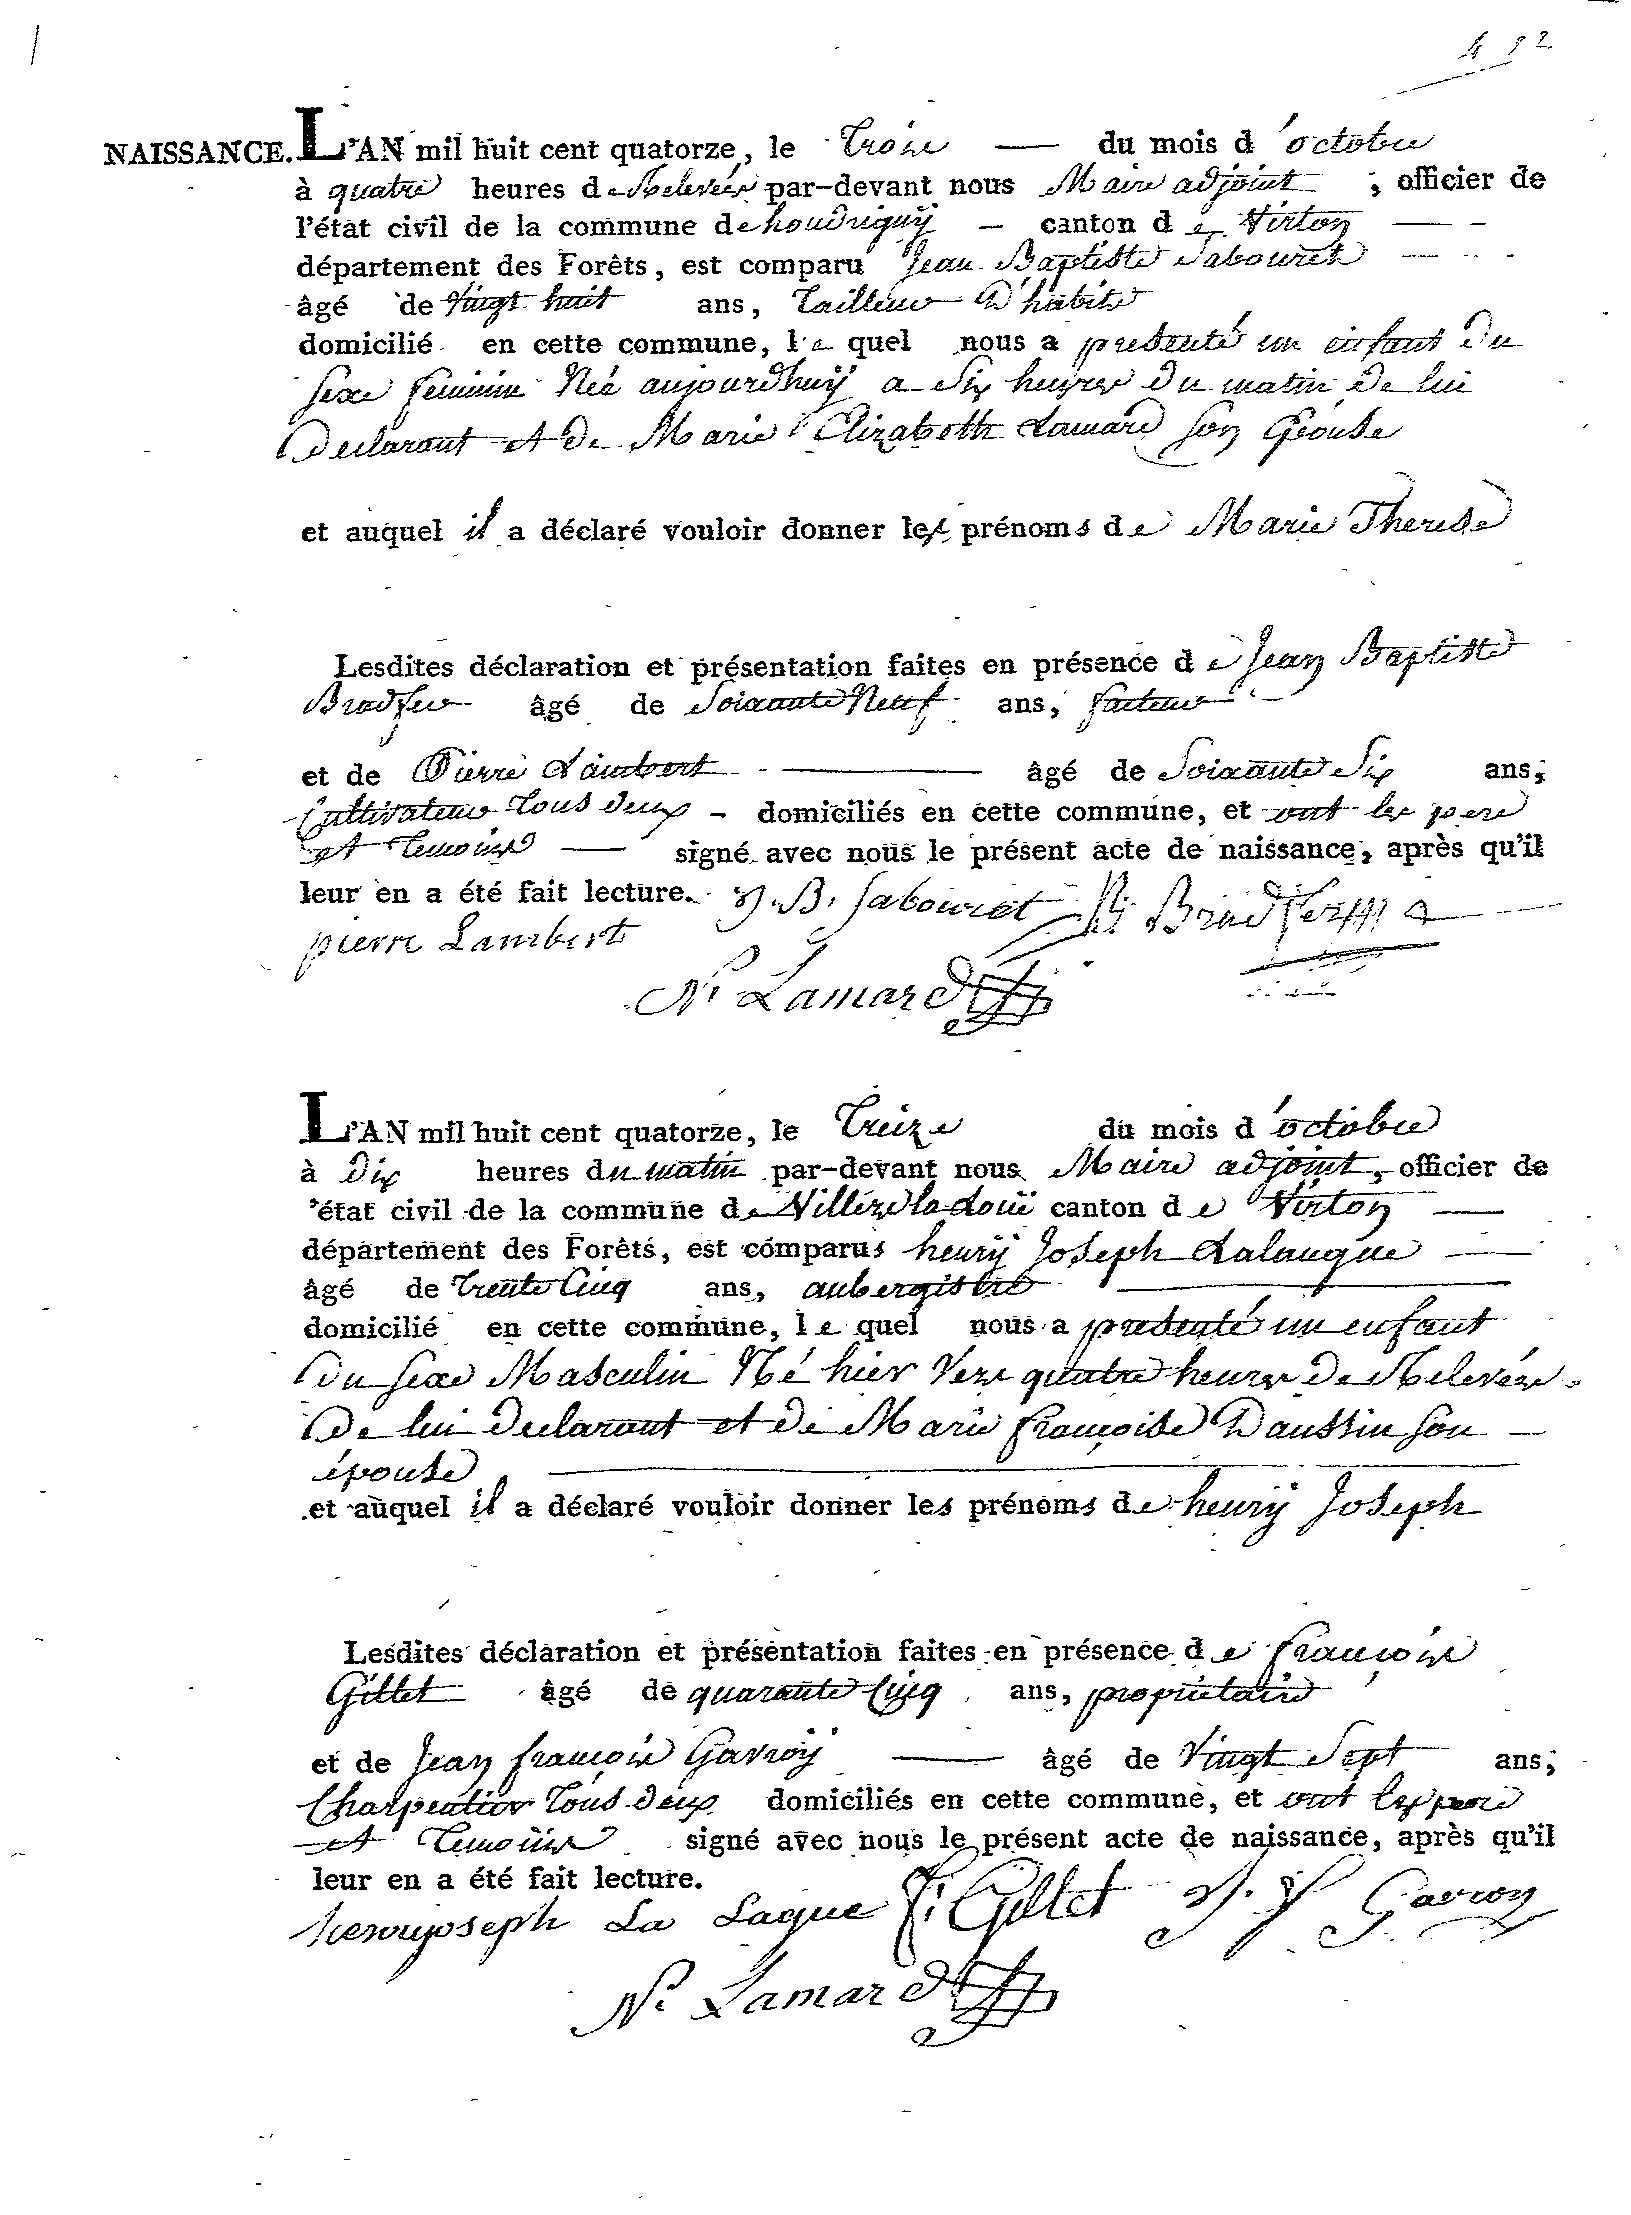 NAISSANCE. L'AN mil huit cent quatorze, le Trois du mois d'octobre
à quatre heures de Relevée par-devant nous Maire adjoint, officier de
l'état civil de la commune de houdrigny - canton de Virton
département des Forêts, est comparu Jean Baptiste Sabouret
âgé de Vingt huit ans, Tailleur D'habits
domicilié en cette commune, le quel nous a presenté un enfant Du
sexe feminin Née aujourdhuÿ a Six heures Du matin De lui
Declarant et De Marie Elizabeth Lamard son Epouse
et auquel il a déclaré vouloir donner les prénoms de Marie Therese
Lesdites déclaration et présentation faites en présence de Jean Baptiste
âgé de Soixante Neuf ans, facteur
et de Pierre Lambert âgé de Soixante Six ans,
Cultivateur Tous deux - domiciliés en cette commune, et ont les pere
et Temoins signé avec nous le présent acte de naissance, après qu'il
leur en a été fait lecture. J. B. Sabouret
pierre Lambert
N. Lamard
L'AN mil huit cent quatorze, le Treize du mois d'octobre
à Dix heures du matin par-devant nous Maire adjoint, officier de
'état civil de la commune de Villers la Loüe canton de Virton
département des Forêts, est comparus henrÿ Joseph Lalangue
âgé de Trente Cinq ans, aubergiste
domicilié en cette commune, le quel nous a presenté un enfant
Du sexe Masculin Né hier Vers quatre heures De Relevée
De lui Declarant et De Marie françoise Daussin son
épouse
et auquel il a déclaré vouloir donner les prénoms de henrÿ Joseph
Lesdites déclaration et présentation faites en présence de françois
Gillet âgé de quarante Cinq ans, propriétaire
et de Jean françois Gavroÿ âgé de Vingt Sept ans,
Charpentier Tous deux domiciliés en cette commune, et ont les pere
et Temoins signé avec nous le présent acte de naissance, après qu'il
leur en a été fait lecture.
henryjoseph La Lague f. Gillet J. f Gavroy
N. Lamard